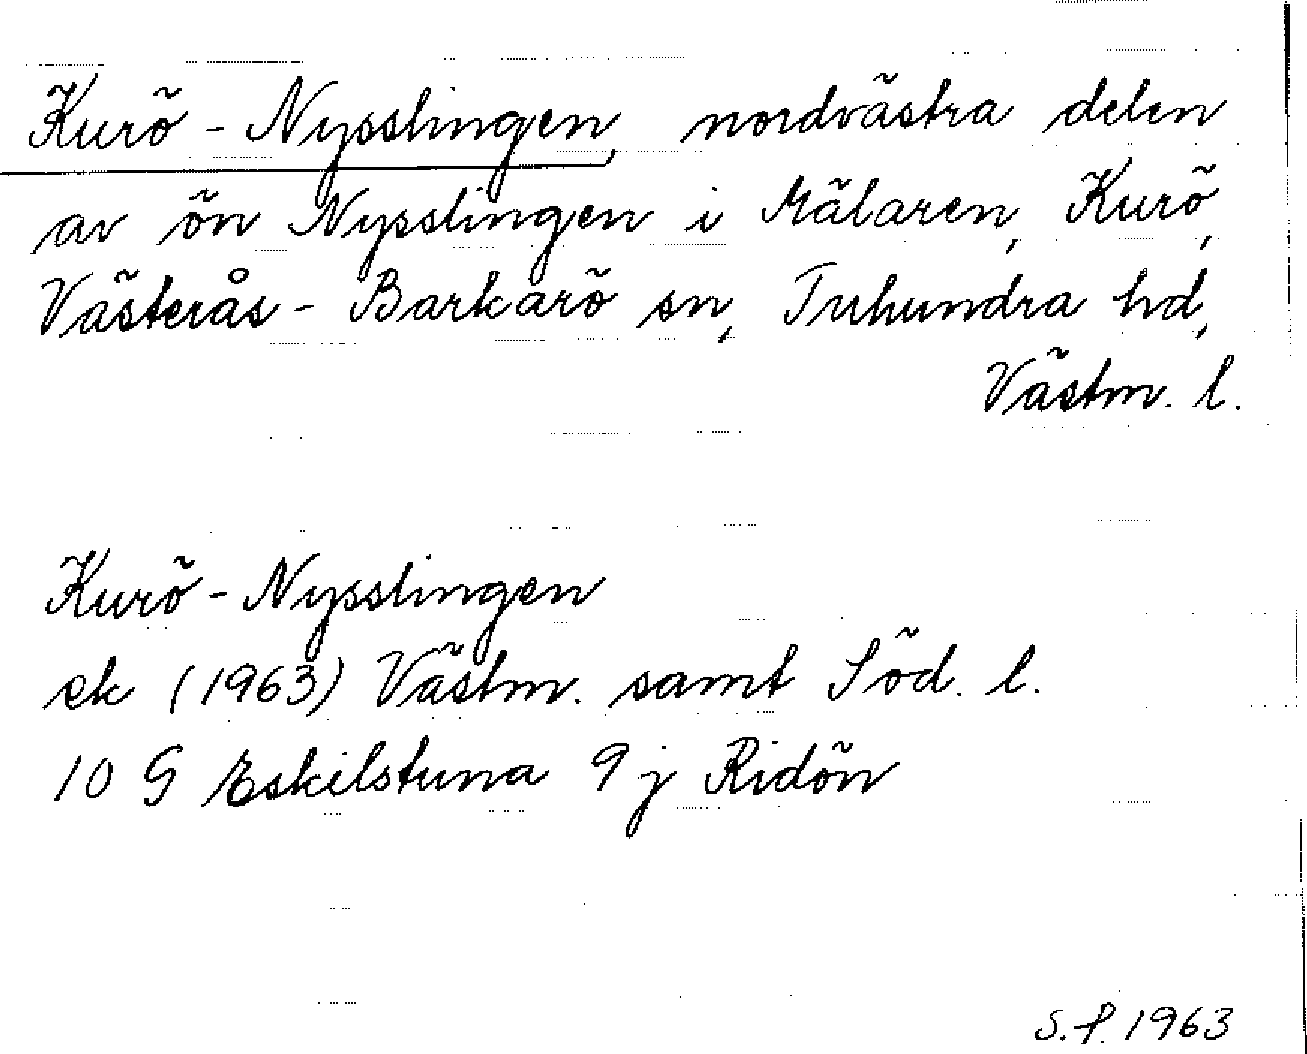 Kurö - Nysslingen, nordvästra delen
av ön Nysslingen i Mälaren, Kurö,
Västerås - Barkarö sn, Tuhundra hd,
Västm. l.
Kurö - Nysslingen
ek (1963) Västm. samt Söd. l.
10 G Eskilstuna 9 j Ridön
S.f. 1963